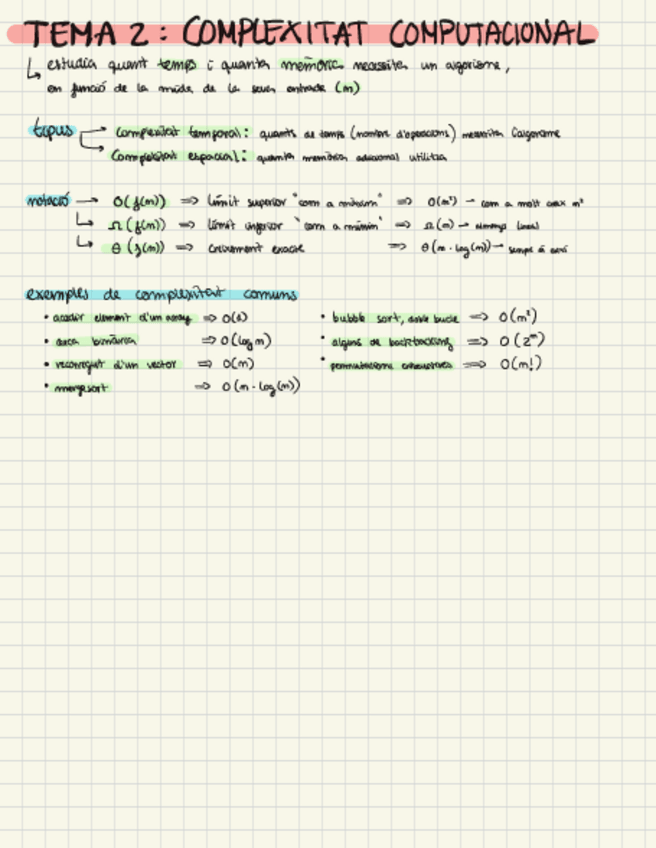 TEMA 2: COMPLEXITAT COMPUTACIONAL
↳ estudia quant temps i quanta memòria necessita un algorisme,
en funció de la mida de la seva entrada (n)
tipus → complexitat temporal: quants de temps (nombre d'operacions) necessita l'algorisme
→ complexitat espacial: quanta memòria adicional utilitza
notació → O(f(n)) ⇒ límit superior "com a màxim" ⇒ O(n²) → com a molt creix n²
↳ Ω(f(n)) ⇒ límit inferior "com a mínim" ⇒ Ω(n) → lineal
↳ Θ(f(n)) ⇒ creixement exacte ⇒ Θ(n·log(n)) → sempre és així
exemples de complexitat comuns
• accedir element d'un array ⇒ O(1)
• cerca binària ⇒ O(log n)
• recorregut d'un vector ⇒ O(n)
• mergesort ⇒ O(n·log(n))
• bubble sort, doble bucle ⇒ O(n²)
• alguns de backtracking ⇒ O(2ⁿ)
• permutacions exhaustives ⇒ O(n!)